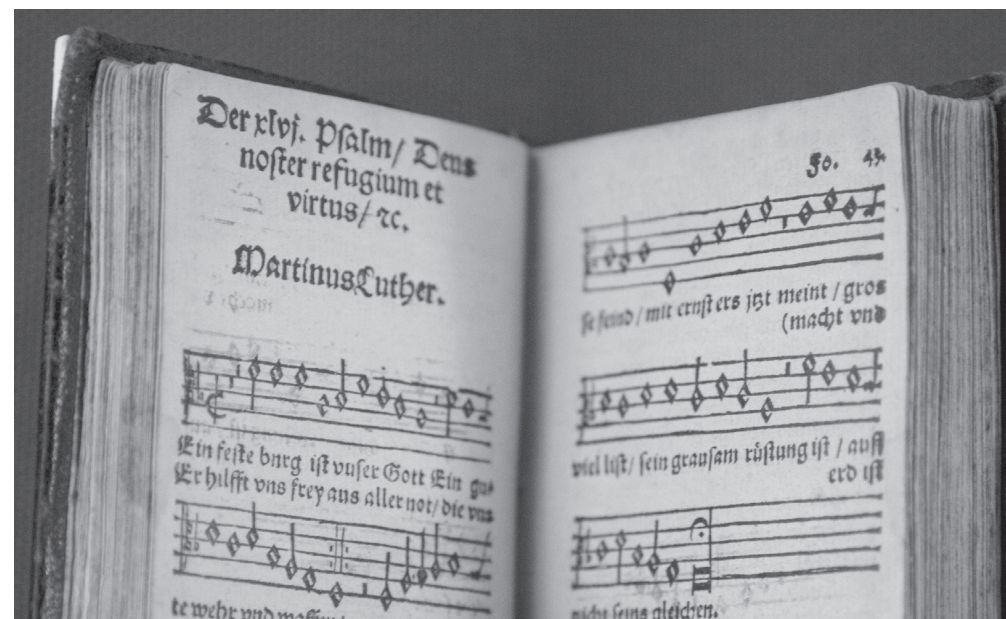 Der xlvj. Psalm/ Deus
noster refugium et
virtus/ ꝛc.
Martinus Luther.
Ein feste bnrg ist vnser Gott Ein gu-
Er hilfft vns frey aus aller not/ die vns
te wehr vnd waffen
Fo. 43.
se feind/ mit ernst ers jtzt meint/ gros
(macht vnd
viel list/ sein grausam rüstung ist/ auff
erd ist
nicht seins gleichen.